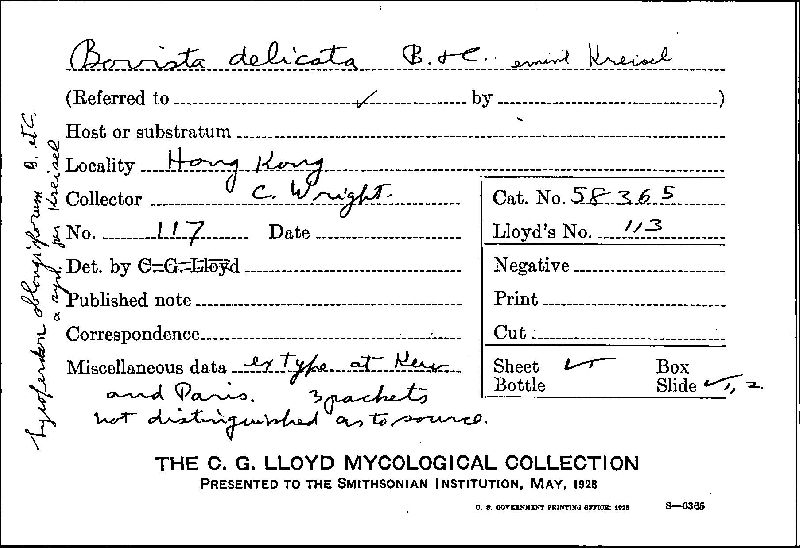 Bovista delicata B. & C. emend Kreisel
(Referred to ✓ by )
Host or substratum
Locality Hong Kong
Collector C. Wright.
No. 117 Date
Det. by C. G. Lloyd
Published note
Correspondence
Miscellaneous data ex type at Kew
and Paris. 3 packets
not distinguished as to source.
Cat. No. 58365
Lloyd's No. 113
Negative
Print
Cut
Sheet ✓ Box
Bottle Slide ✓ 1, 2
Lycoperdon oblongisporum B. et C.
a syn. per Kreisel
THE C. G. LLOYD MYCOLOGICAL COLLECTION
PRESENTED TO THE SMITHSONIAN INSTITUTION, MAY, 1928
U. S. GOVERNMENT PRINTING OFFICE: 1928 S—6365